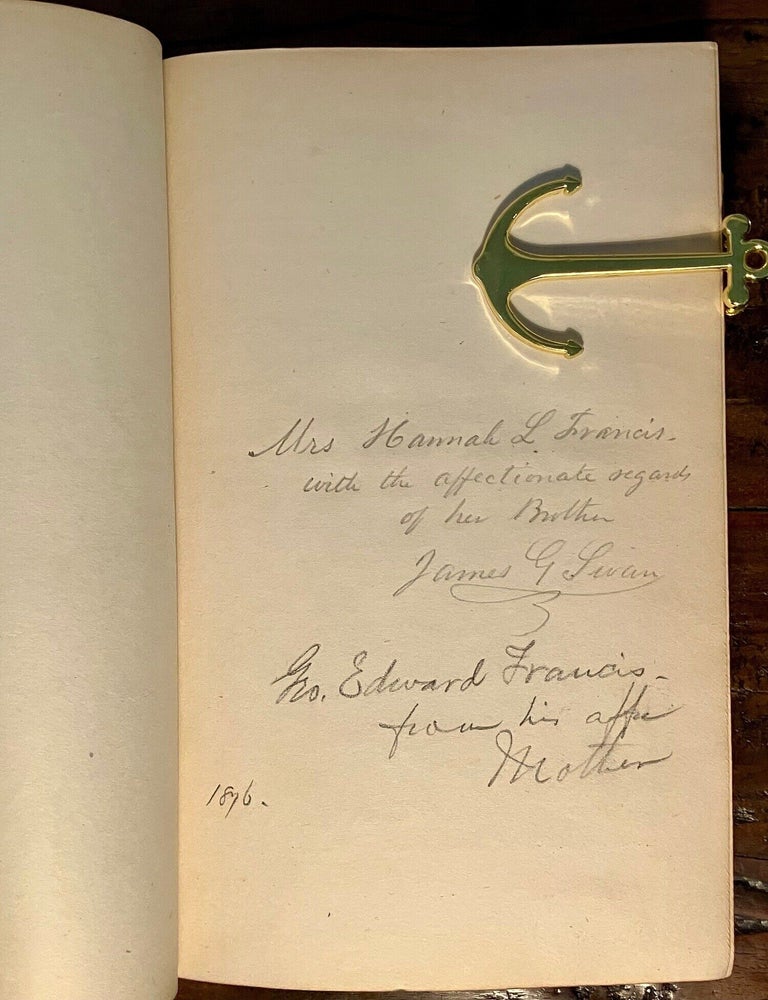 Mrs Hannah L Francis.
with the affectionate regards
of her Brother
James G Swan
Geo. Edward Francis.
from his affe
Mother
1876.